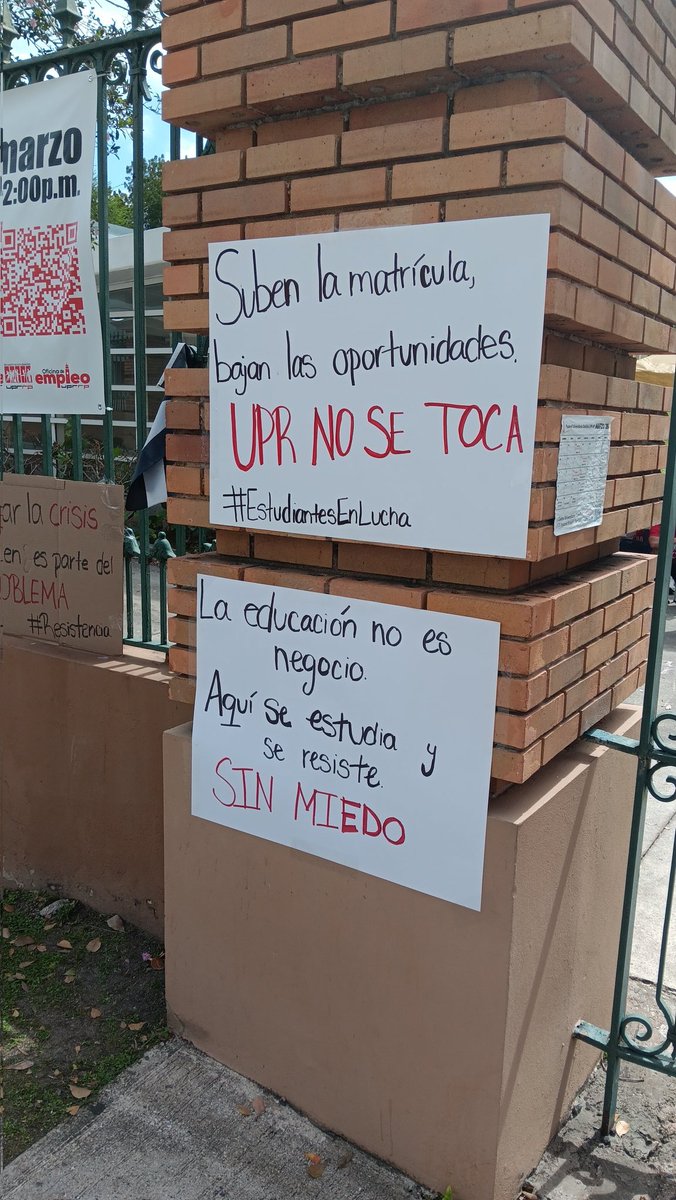 marzo
2:00p.m.
Oficina de
empleo
Suben la matrícula,
bajan las oportunidades.
UPR NO SE TOCA
#EstudiantesEnLucha
la crisis
es parte del
#Resistencia
La educación no es
negocio.
Aquí se estudia y
se resiste.
SIN MIEDO